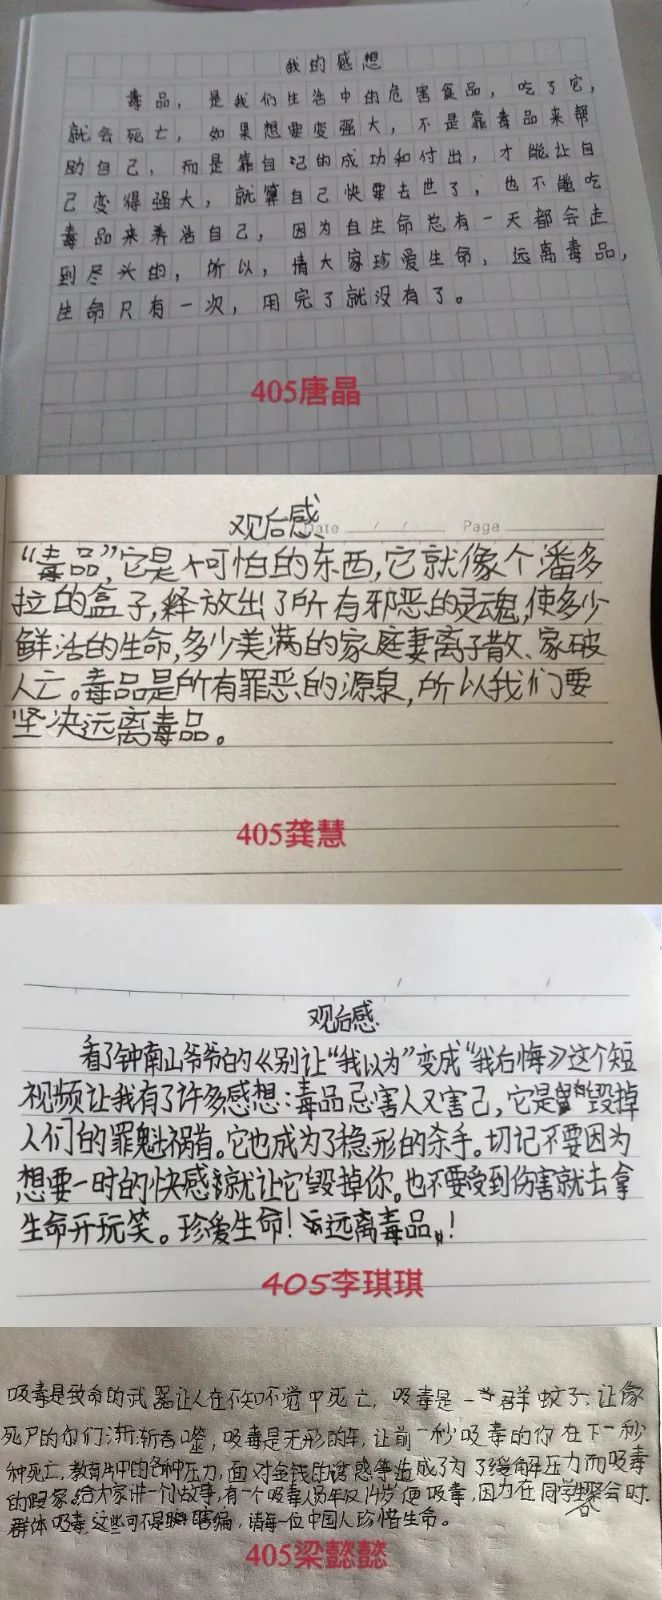 我的感想
毒品，是我们生活中的危害食品，吃了它，
就会死亡，如果想要变强大，不是靠毒品来帮
助自己，而是靠自己的成功和付出，才能让自
己变得强大，就算自己快要去世了，也不能吃
毒品来养活自己，因为自生命总有一天都会走
到尽头的，所以，情大家珍爱生命，远离毒品，
生命只有一次，用完了就没有了。
405唐晶
观后感
Date / / Page
“毒品”，它是个可怕的东西，它就像个潘多
拉的盒子，释放出了所有邪恶的灵魂，使多少
鲜活的生命，多少美满的家庭妻离子散、家破
人亡。毒品是所有罪恶的源泉，所以我们要
坚决远离毒品。
405龚慧
观后感
看了钟南山爷爷的《别让“我以为”变成“我后悔》这个短
视频让我有了许多感想：毒品忌害人又害己，它是毁掉
人们的罪魁祸首。它也成为了稳形的杀手。切记不要因为
想要一时的快感就让它毁掉你。也不要受到伤害就去拿
生命开玩笑。珍爱生命！远离毒品！
405李琪琪
吸毒是致命的武器让人在不知不觉中死亡，吸毒是一群蚊子，让像
死尸的你们渐渐吞噬，吸毒是无形的车，让前一秒吸毒的你在下一秒
种死亡，教育片中的各种压力，面对金钱的诱惑等造成了为了缓解压力而吸毒
的国家。给大家讲一个故事，有一个吸毒人员年仅14岁便吸毒，因为在同学聚会时，
群体吸毒这些可不是瞎编，请每一位中国人珍惜生命。
405梁懿懿